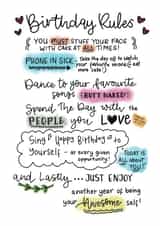 Birthday Rules
YOU MUST STUFF YOUR FACE
WITH CAKE AT ALL TIMES!
PHONE IN SICK.. Take the day off to watch
your favourite movies (& eat
more cake!)
Dance to your favourite
songs BUTT NAKED!
Spend The Day with the
PEOPLE you LOVE
Sing Happy Birthday to
Yourself - at every given
opportunity!
TODAY IS
ALL ABOUT
YOU!
and Lastly... JUST ENJOY
another year of being
your Awesome self!